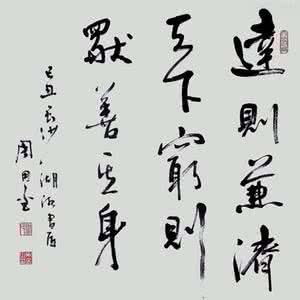 達則兼濟
天下窮則
獨善其身
己丑長沙湖湘書屋
周